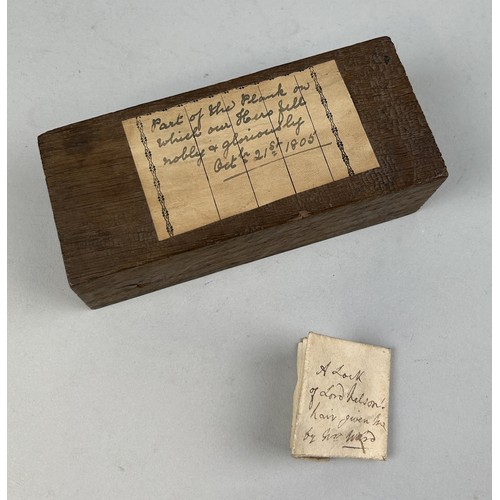 Part of the Plank on
which our Hero fell
nobly & gloriously
Octr 21st 1805
A Lock
of Lord Nelson's
hair given me
by Mrs Ward